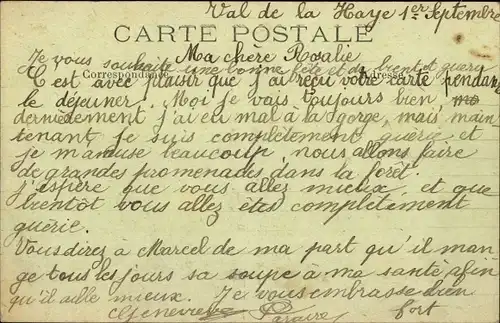 Val de la Haye 1er Septembre
CARTE POSTALE
Ma chère Rosalie
Je vous souhaite une bonne fête et de bientot guérir
Correspondance Adresse
C est avec plaisir que j'ai reçu votre carte pendant
le déjeuner. Moi je vais toujours bien
dernièdement j'ai eu mal à la gorge, mais main
tenant je suis complètement guérie et
je m'amuse beaucoup, nous allons faire
de grandes promenades dans la forêt.
J'espère que vous allez mieux, et que
bientôt vous allez êtes complètement
guérie.
Vous direz à Marcel de ma part qu'il man
ge tous les jours sa soupe à ma santé afin
qu'il aille mieux. Je vous embrasse bien
fort
Geneviève